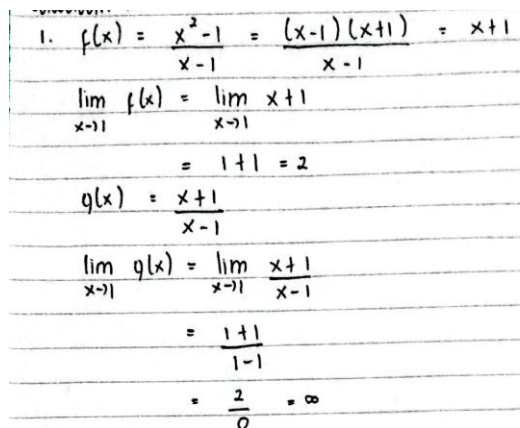 1. f(x) = x² - 1 / x - 1 = (x-1)(x+1) / x - 1 = x+1
lim x→1 f(x) = lim x→1 x+1
= 1+1 = 2
g(x) = x+1 / x-1
lim x→1 g(x) = lim x→1 x+1 / x-1
= 1+1 / 1-1
= 2 / 0 = ∞